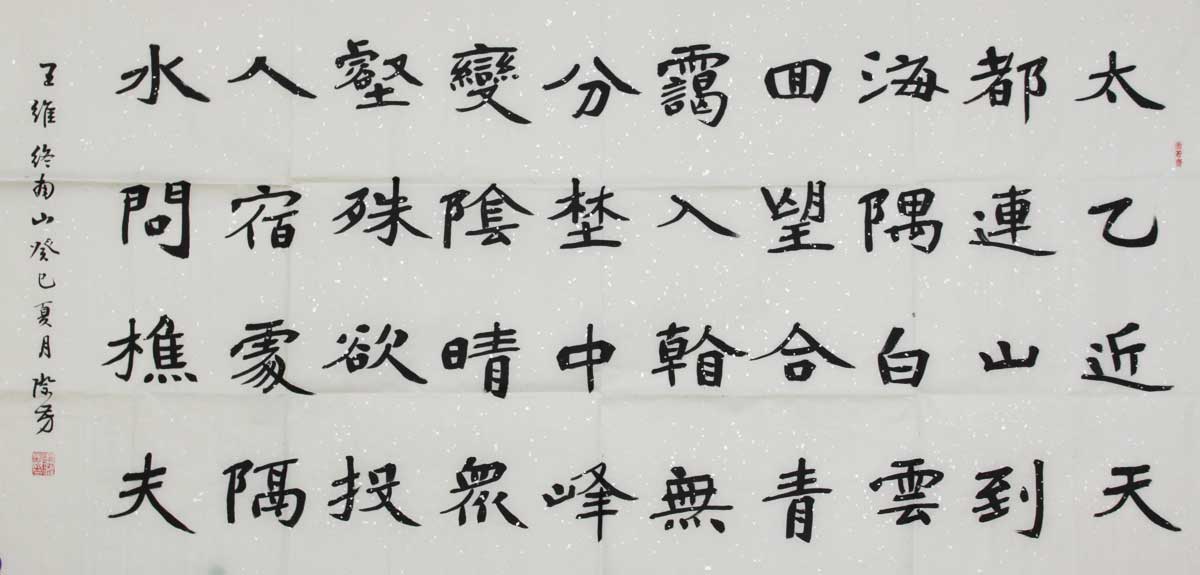 太乙近天
都連山到
海隅白雲
囬望合青
靄入看無
分埜中峰
變陰晴眾
壑殊欲投
人宿處隔
水問樵夫
王維終南山癸巳夏月芳